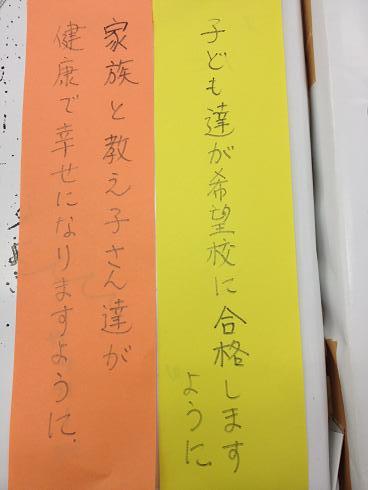 子ども達が希望校に合格します
ように
家族と教え子さん達が
健康で幸せになりますように.